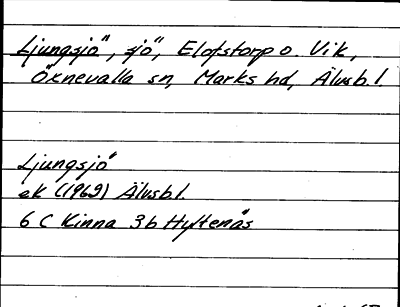 Ljungsjö, sjö, Elofstorp o. Vik,
Öxnevalla sn, Marks hd, Älvsb. l.
Ljungsjö
ek (1969) Älvsb l.
6 C Kinna 3b Hyltenäs